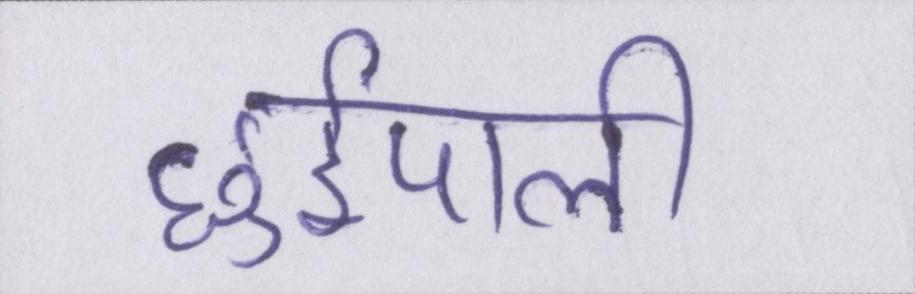 छुईपाली